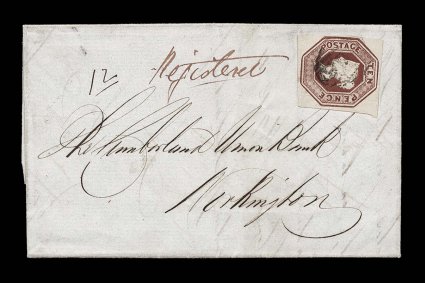 Registered
POSTAGE
TEN
PENCE
12
The Cumberland Union Bank
Workington